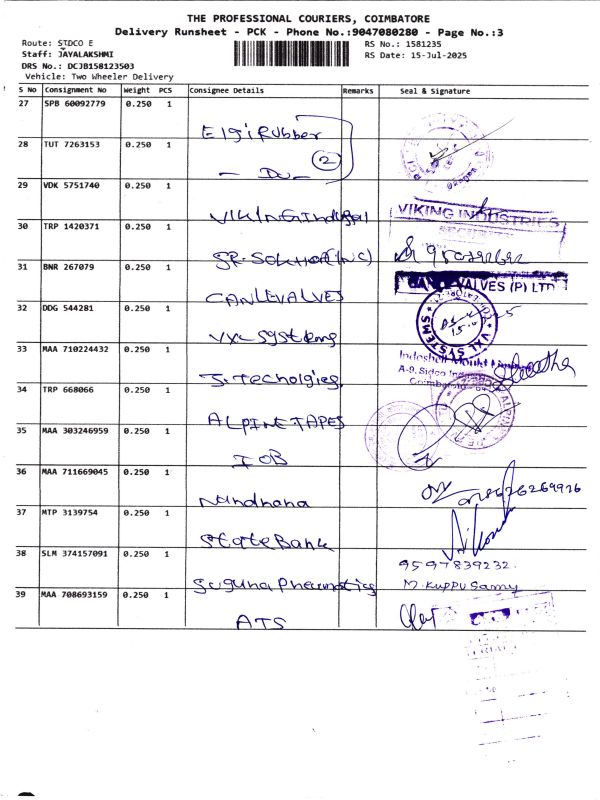 THE PROFESSIONAL COURIERS, COIMBATORE
Delivery Runsheet - PCK - Phone No.:9047080280 - Page No.:3
Route: SIDCO E
Staff: JAYALAKSHMI
DRS No.: DCJB158123503
Vehicle: Two Wheeler Delivery
RS No.: 1581235
RS Date: 15-Jul-2025
S No Consignment No Weight PCS Consignee Details Remarks Seal & Signature
27 SPB 60092779 0.250 1
Elgi Rubber
28 TUT 7263153 0.250 1
2
- Do -
29 VDK 5751740 0.250 1
VIKING INDUSTRIES
30 TRP 1420371 0.250 1
31 BNR 267079 0.250 1
VALVES (P) LTD
CANLEVALVES
32 DDG 544281 0.250 1
VXL SYSTEMS
VXL Systems
33 MAA 710224432 0.250 1
A-9, Sidco
34 TRP 668066 0.250 1
ALPINE TAPES
35 MAA 303246959 0.250 1
IOB
36 MAA 711669045 0.250 1
Nandhana
37 MTP 3139754 0.250 1
State Bank
38 SLM 374157091 0.250 1
9597839232
Suguna Pneumatics M. Kuppu Samy
39 MAA 708693159 0.250 1
ATS